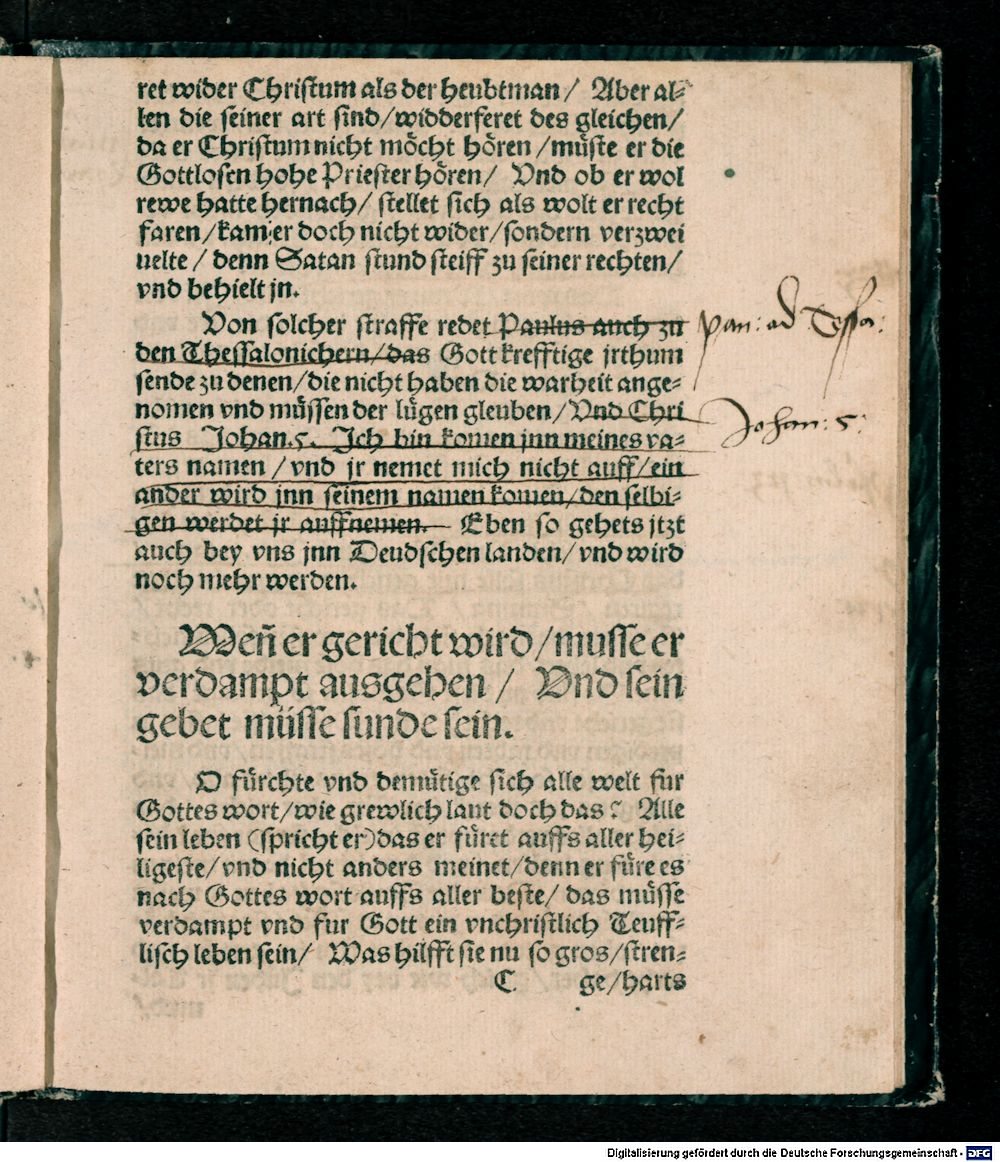 ret wider Christum als der heubtman / Aber al⸗
len die seiner art sind/widderferet des gleichen/
da er Christum nicht möcht hören /müste er die
Gottlosen hohe Priester hören/ Vnd ob er wol
rewe hatte hernach/ stellet sich als wolt er recht
faren/kam er doch nicht wider/sondern verzwei
uelte / denn Satan stund steiff zu seiner rechten/
vnd behielt jn.
Von solcher straffe redet Paulus auch zu
den Thessalonichern/das Gott krefftige jrthum
sende zu denen/die nicht haben die warheit ange⸗
nomen vnd müssen der lügen gleuben/Vnd Chri
stus Johan.5. Ich bin komen jnn meines va⸗
ters namen /vnd jr nemet mich nicht auff/ein
ander wird jnn seinem namen komen/den selbi⸗
gen werdet jr auffnemen. Eben so gehets jtzt
auch bey vns jnn Deudschen landen/vnd wird
noch mehr werden.
Weñ er gericht wird/musse er
verdampt ausgehen / Vnd sein
gebet müsse sunde sein.
O fürchte vnd demütige sich alle welt fur
Gottes wort/wie grewlich laut doch das? Alle
sein leben (spricht er)das er füret auffs aller hei⸗
ligeste/vnd nicht anders meinet/denn er füre es
nach Gottes wort auffs aller beste/ das müsse
verdampt vnd fur Gott ein vnchristlich Teuff⸗
lisch leben sein/ Was hilfft sie nu so gros/stren⸗
C ge/harts
Pau: ad Tessa:
Johan: 5:
Digitalisierung gefördert durch die Deutsche Forschungsgemeinschaft - DFG